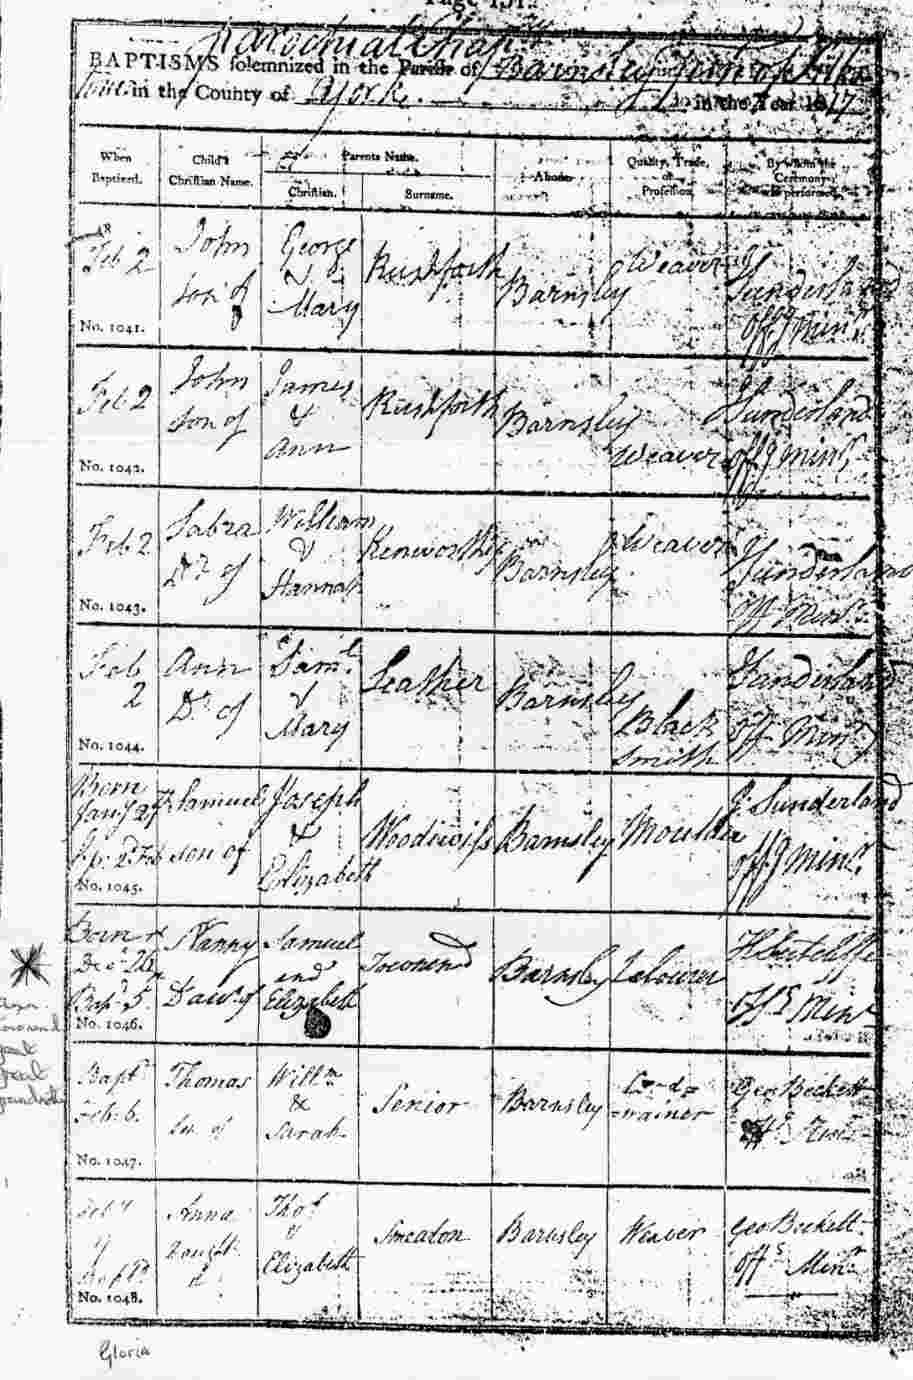 Page 131.
Parochial Chap.ry
BAPTISMS solemnized in the Parish of Barnsley
in the County of York in the Year 1817
When Baptized.
Child's Christian Name.
Parents Name.
Christian.
Surname.
Abode.
Quality, Trade, or Profession.
By whom the Ceremony was performed.
18
Feb 2
No. 1041.
John
son of
George
&
Mary
Rushforth
Barnsley
Weaver
J Sunderland
Offg Minr.
Feb 2
No. 1042.
John
son of
James
&
Ann
Rushforth
Barnsley
Weaver
J Sunderland
offg minr.
Feb 2
No. 1043.
Sabra
Dr. of
William
&
Hannah
Kenworthy
Barnsley
Weaver
J Sunderland
Off Minr.
Feb
2
No. 1044.
Ann
Dr. of
Saml.
&
Mary
Leather
Barnsley
Black
Smith
J Sunderland
Off Minr
Born
Jany 27
2d Feb
No. 1045.
Samuel
son of
Joseph
&
Elizabeth
Woodiwiss
Barnsley
Moulder
J. Sunderland
offg minr.
Born
Decr 26
Bapd 5
No. 1046.
Nanny
Dawr of
Samuel
and
Elizabeth
Townend
Barnsley
Labourer
H Sutcliffe
Offg Minr
great
great
grandmother
Bapt
Feb: 6.
No. 1047.
Thomas
Son of
Willm
&
Sarah
Senior
Barnsley
Cord=
=wainer
Geo Beckett
Feb 7
No. 1048.
Anna
Daught
of
Thos
&
Elizabeth
Smeaton
Barnsley
Weaver
Geo Beckett
Offg Minr
Gloria